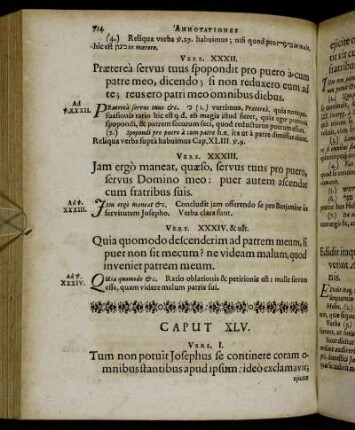 714 ANNOTATIONES
(4.) Reliqua verba v.29. habuimus; nisi quod pro
hic est in mœrore.
VERS. XXXII.
Prætereà servus tuus spopondit pro puero à-cum
patre meo, dicendo; si non reduxero eum ad
te; reus ero patri meo omnibus diebus.
Ad
v.XXXII.
Prætereà servus tuus &c. (1.) vertimus, Prætereà, quia nova per-
suasionis ratio hîc est q.d. ob magis illud fieret, quia ego pro eo
spopondi, & patrem securum feci, quod reducturus puerum essem.
(2.) Spopondi pro puero à cum patre h.e. ita ut à patre dimissus
Reliqua verba supra habuimus Cap.XLIII. v.9.
VERS. XXXIII.
Jam ergò maneat, quæso, servus tuus pro puero,
servus Domino meo: puer autem ascendat
cum fratribus suis.
Ad v.
XXXIII.
Jam ergò maneat &c. Concludit jam offerendo se pro Benjamino in
servitutem Josepho. Verba clara sunt.
VERS. XXXIV. & ult.
Quia quomodo descenderim ad patrem meum, si
puer non sit mecum? ne videam malum, quod
inveniet patrem meum.
Ad v.
XXXIV.
Quia quomodo &c. Ratio oblationis & petitionis est: malle servum
esse, quam videre malum patris sui.
CAPUT XLV.
VERS. I.
Tum non potuit Josephus se continere coram o-
mnibus stantibus apud ipsum: ideò exclamavit;
ejicite